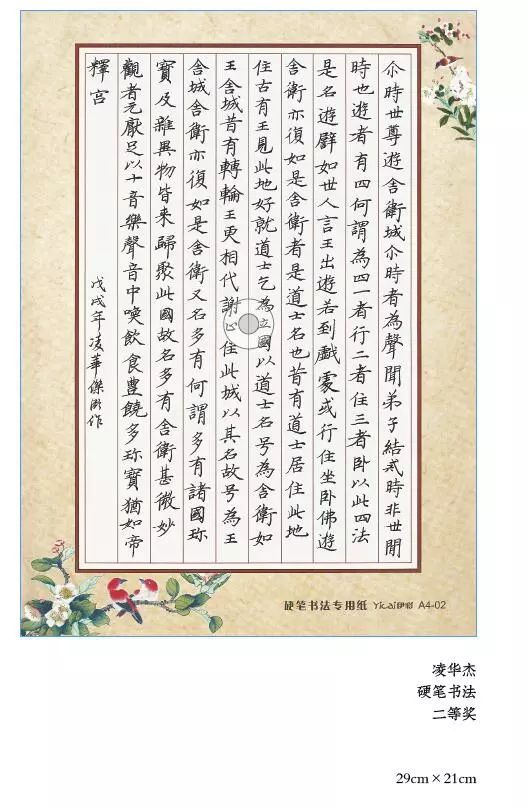 尒時世尊遊舍衛城尒時者為聲聞弟子結戒時非世間
時也遊者有四何謂為四一者行二者住三者卧以此四法
是名遊譬如世人言王出遊若到戲處或行住坐卧佛遊
舍衛亦復如是舍衛者是道士名也昔有道士居住此地
住古有王見此地好就道士乞為立國以道士名号為舍衛如
王舍城昔有轉輪王更相代謝止住此城以其名故号為王
舍城舍衛亦復如是舍衛又名多有何謂多有諸國珎
寶及雜異物皆来歸聚此國故名多有舍衛甚微妙
觀者无厭足以十音樂聲音中喚飲食豊饒多珎寶猶如帝
釋宫
戊戌年凌華傑作
硬笔书法专用纸 Yicai伊彩 A4-02
凌华杰
硬笔书法
二等奖
29cm×21cm